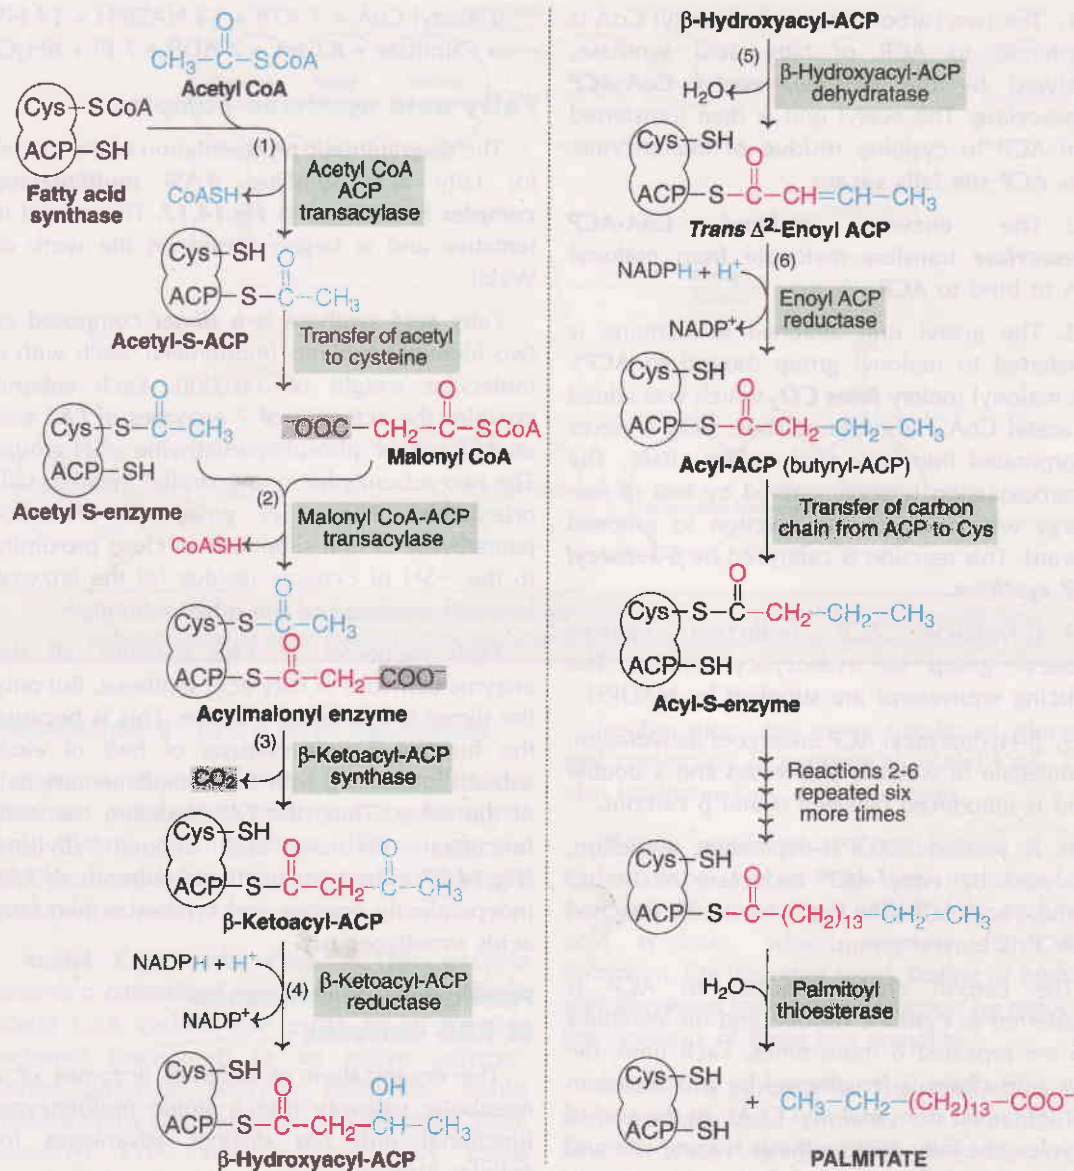 O
CH₃–C–SCoA
Acetyl CoA
Cys–SCoA
ACP–SH
Fatty acid
synthase
(1)
Acetyl CoA
ACP
transacylase
CoASH
Cys–SH O
ACP–S–C–CH₃
Acetyl-S-ACP
Transfer of acetyl
to cysteine
O
Cys–S–C–CH₃
ACP–SH
Acetyl S-enzyme
O
⁻OOC–CH₂–C–SCoA
Malonyl CoA
(2)
Malonyl CoA-ACP
transacylase
CoASH
O
Cys–S–C–CH₃
O
ACP–S–C–CH₂–COO⁻
Acylmalonyl enzyme
(3)
β-Ketoacyl-ACP
synthase
CO₂
Cys–SH O O
ACP–S–C–CH₂–C–CH₃
β-Ketoacyl-ACP
NADPH + H⁺
(4)
β-Ketoacyl-ACP
reductase
NADP⁺
Cys–SH O OH
ACP–S–C–CH₂–CH–CH₃
β-Hydroxyacyl-ACP
β-Hydroxyacyl-ACP
(5)
β-Hydroxyacyl-ACP
dehydratase
H₂O
Cys–SH O
ACP–S–C–CH=CH–CH₃
Trans Δ²-Enoyl ACP
NADPH + H⁺
(6)
Enoyl ACP
reductase
NADP⁺
Cys–SH O
ACP–S–C–CH₂–CH₂–CH₃
Acyl-ACP (butyryl-ACP)
Transfer of carbon
chain from ACP to Cys
O
Cys–S–C–CH₂–CH₂–CH₃
ACP–SH
Acyl-S-enzyme
Reactions 2-6
repeated six
more times
Cys–SH O
ACP–S–C–(CH₂)₁₃–CH₂–CH₃
H₂O
Palmitoyl
thioesterase
Cys–SH
ACP–SH
+ CH₃–CH₂–(CH₂)₁₃–COO⁻
PALMITATE